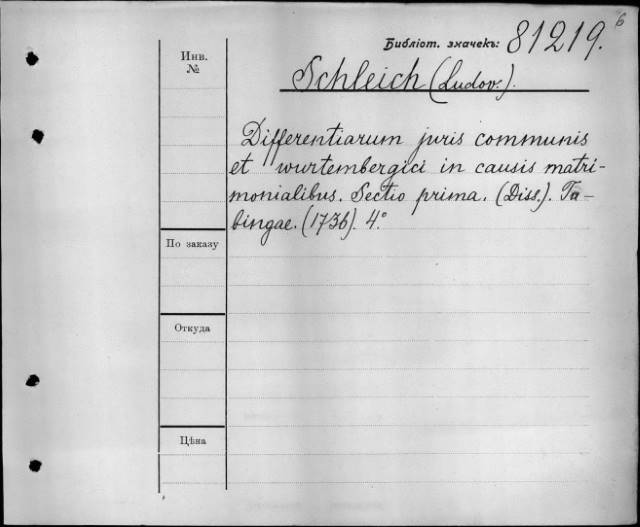 6
Библіот. значекъ: 81219.
Инв.
№
Schleich (Ludov.).
Differentiarum juris communis
et wurtembergici in causis matri-
monialibus. Sectio prima. (Diss.). Tu-
bingae. (1736). 4°
По заказу
Откуда
Цѣна